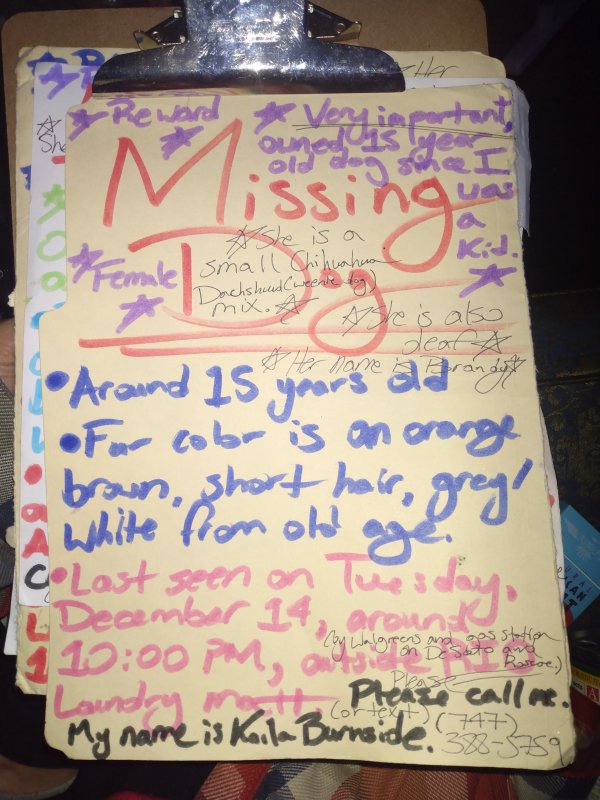 ☆ Her
★ Reward
★
★ Very important,
owned 15 year
old dog since I
was
a
kid.
★
Missing
Dog
★ Female
★
☆ She is a
small Chihuahua
Dachshund (weenie dog)
mix. ☆
☆ She is also
deaf ☆
☆ Her name is Brandy ☆
• Around 15 years old
• Fur color is an orange
brown, short hair, grey/
white from old age.
• Last seen on Tuesday,
December 14, around
10:00 PM, outside
(by Walgreens and gas station
on DeSoto and
Roscoe.)
Laundry matt.
Please
Please call me.
(or text) (747)
My name is Kaila Burnside. 388-3759